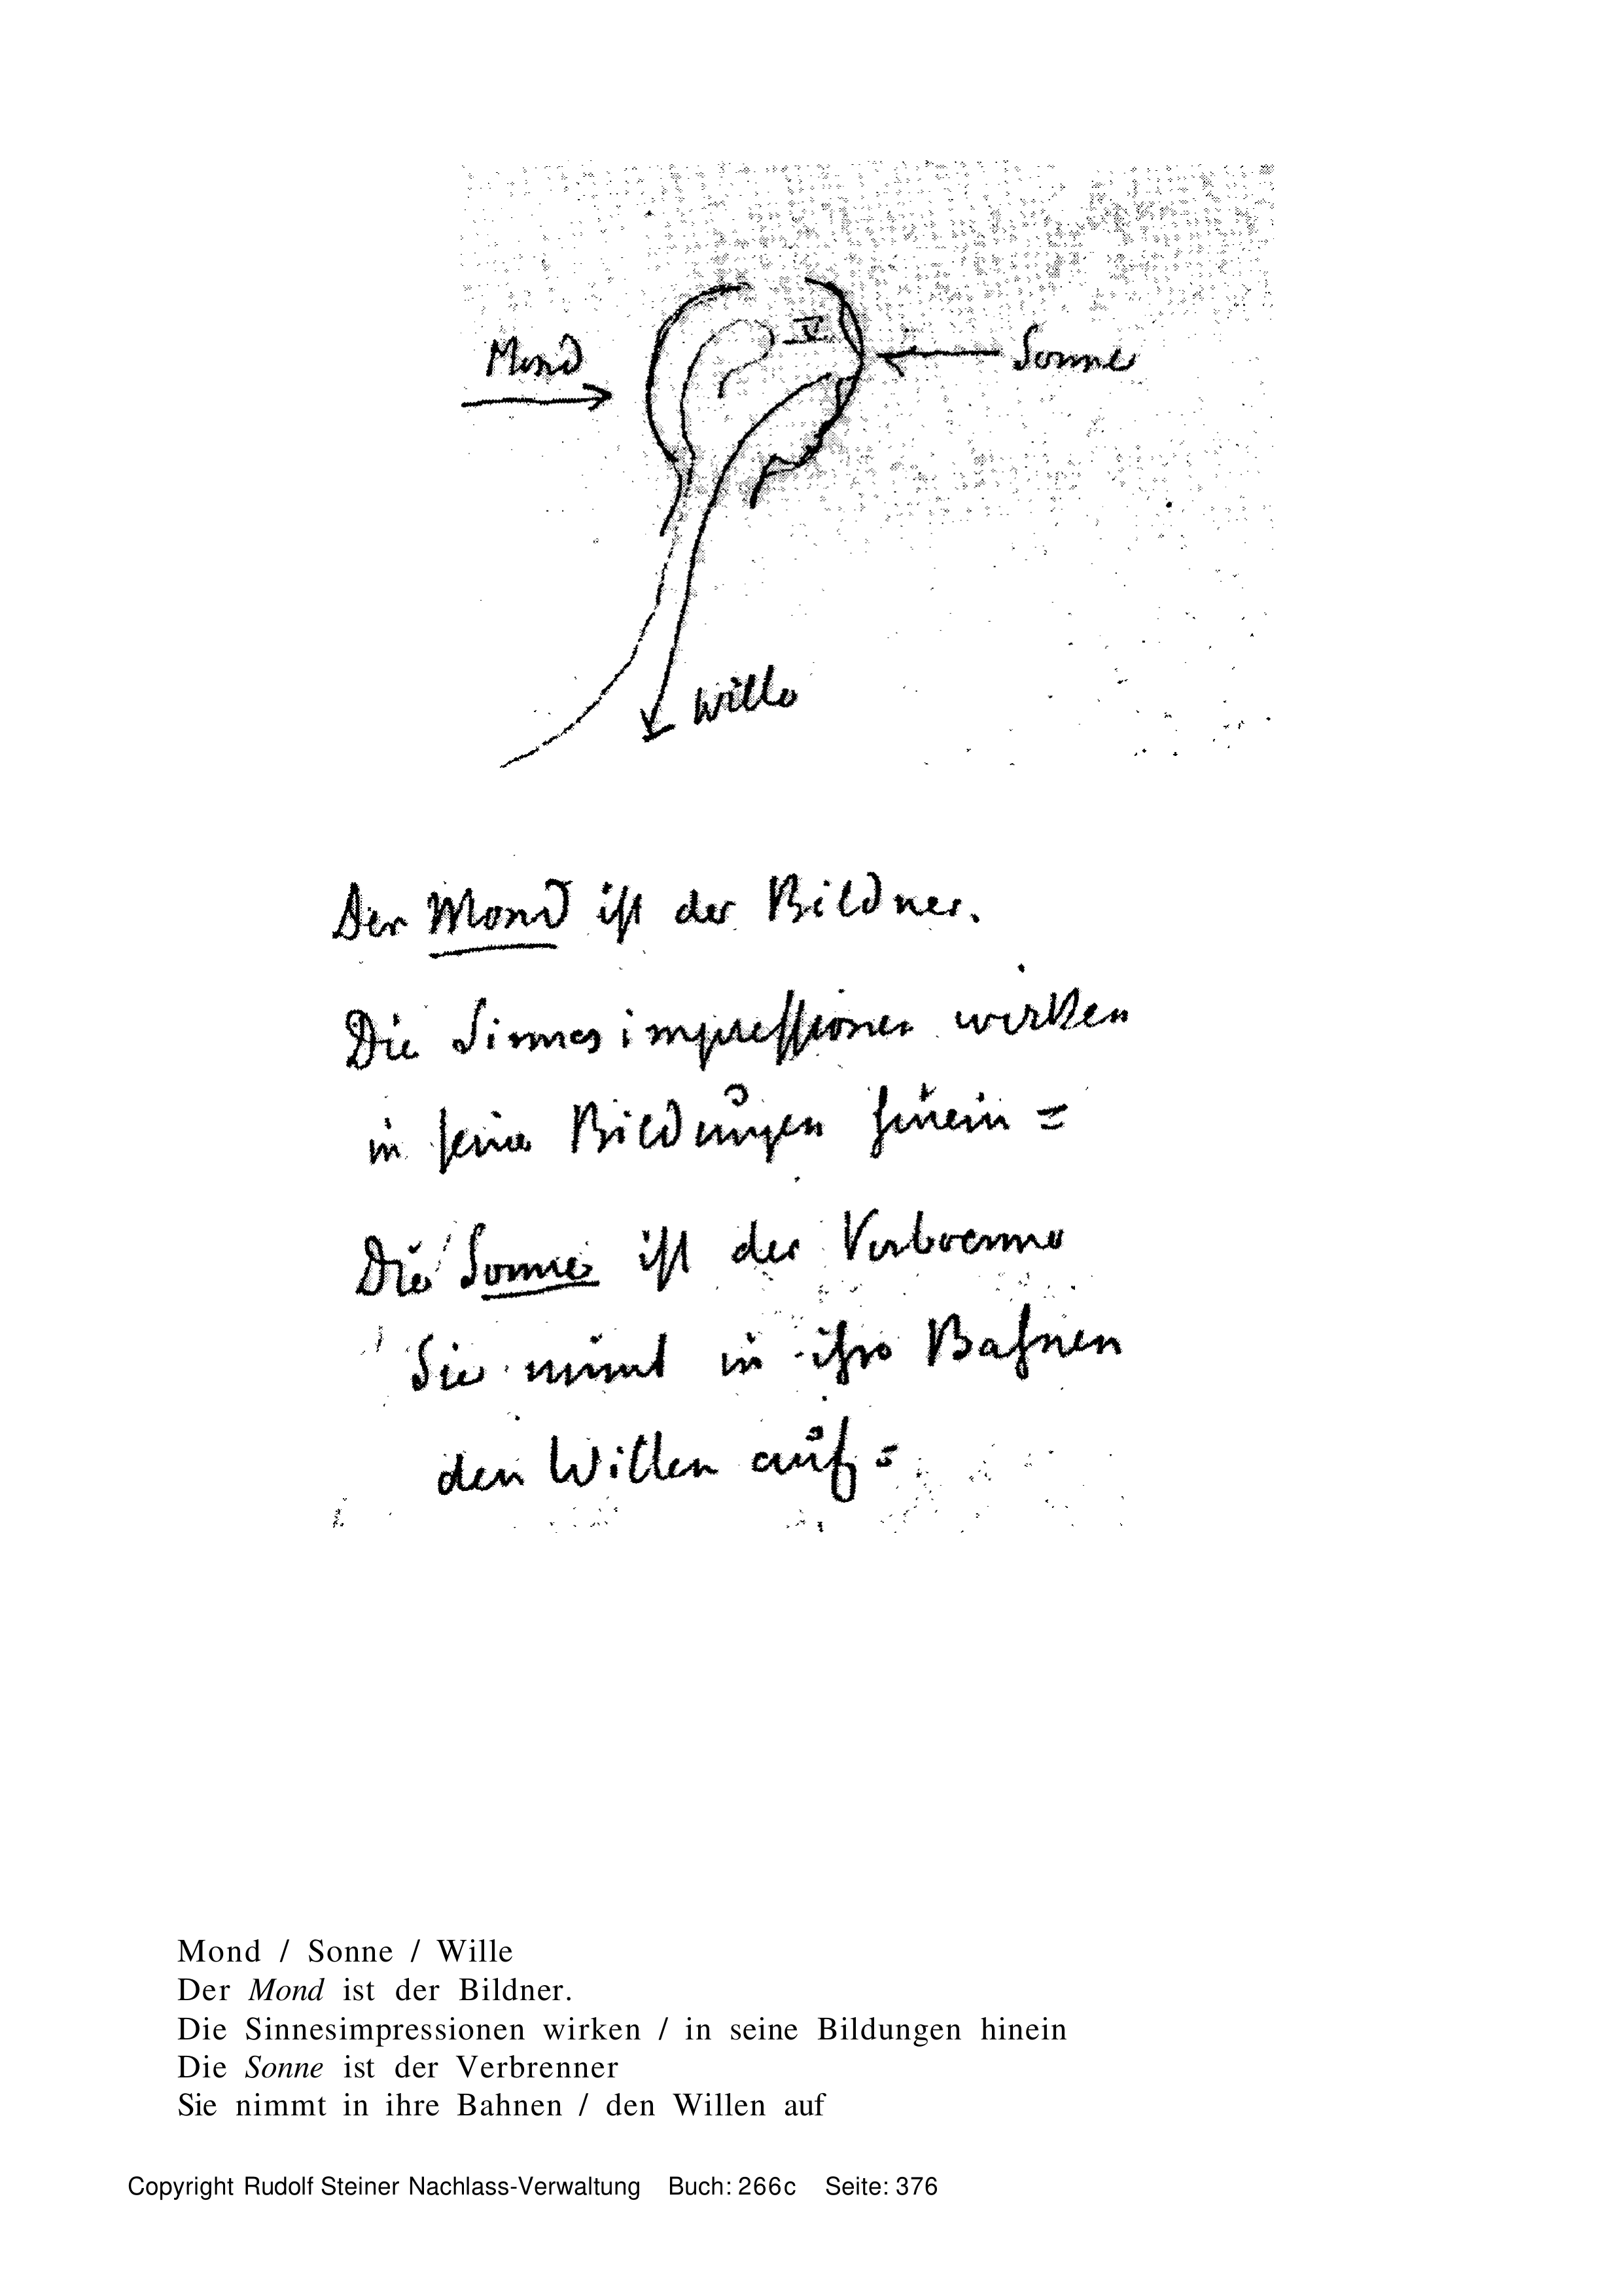 Mond
IV
Sonne
Wille
Der Mond ist der Bildner.
Die Sinnesimpressionen wirken
in seine Bildungen hinein =
Die Sonne ist der Verbrenner
Sie nimmt in ihre Bahnen
den Willen auf =
Mond / Sonne / Wille
Der Mond ist der Bildner.
Die Sinnesimpressionen wirken / in seine Bildungen hinein
Die Sonne ist der Verbrenner
Sie nimmt in ihre Bahnen / den Willen auf
Copyright Rudolf Steiner Nachlass-Verwaltung Buch: 266c Seite: 376